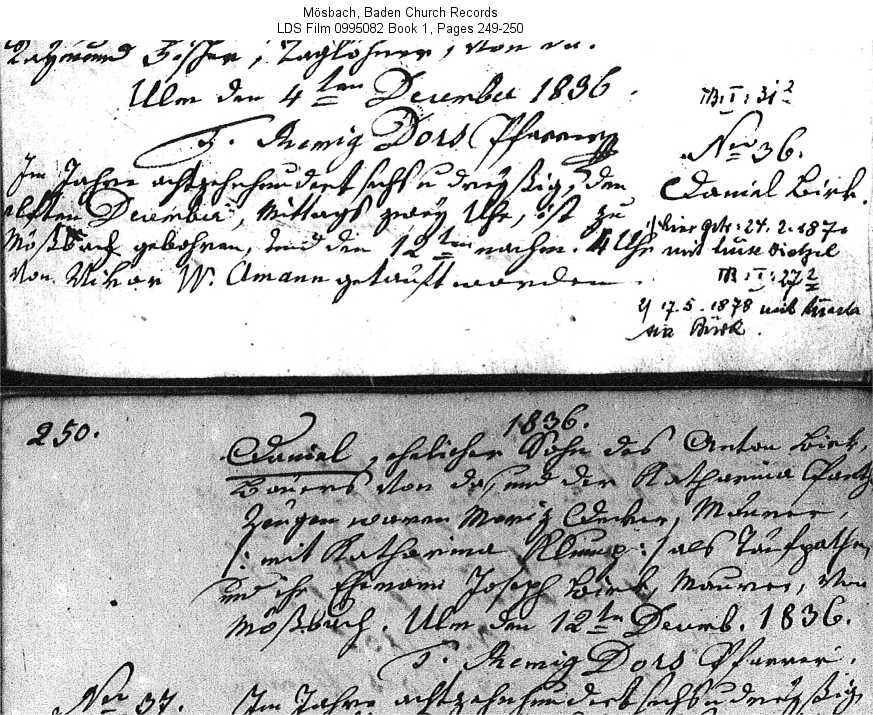 Mösbach, Baden Church Records
LDS Film 0995082 Book 1, Pages 249-250
Raymund Fischer, Taglöhner, von da.
Ulm den 4ten December 1836.
F. Remig Dors Pfarrer
Im Jahre achtzehnhundert sechs u dreyßig, den
elften December, Mittags zwey Uhr, ist zu
Mößbach gebohren, und den 12ten nachm. 4 Uhr
von Vikar W. Amann getauft worden
B: I: 31 2
Nro 36.
Daniel Birk.
1/ hier getr: 24. 2. 187
mit Luise
B: I: 27 2
2/ 17. 5. 1878 mit
Birk.
250.
1836.
Daniel, ehelicher Sohn des Anton Birk,
Bauers von da, und der Katharina
Zeugen waren Moriz Decker, Maurer,
/: mit Katharina Klump :/ als Taufpathen,
und ihr Ehemann Joseph Birk, Maurer, von
Mößbach. Ulm den 12ten Decemb. 1836.
F. Remig Dors Pfarrer.
Nro 37. Im Jahre achtzehnhundert sechs u dreyßig